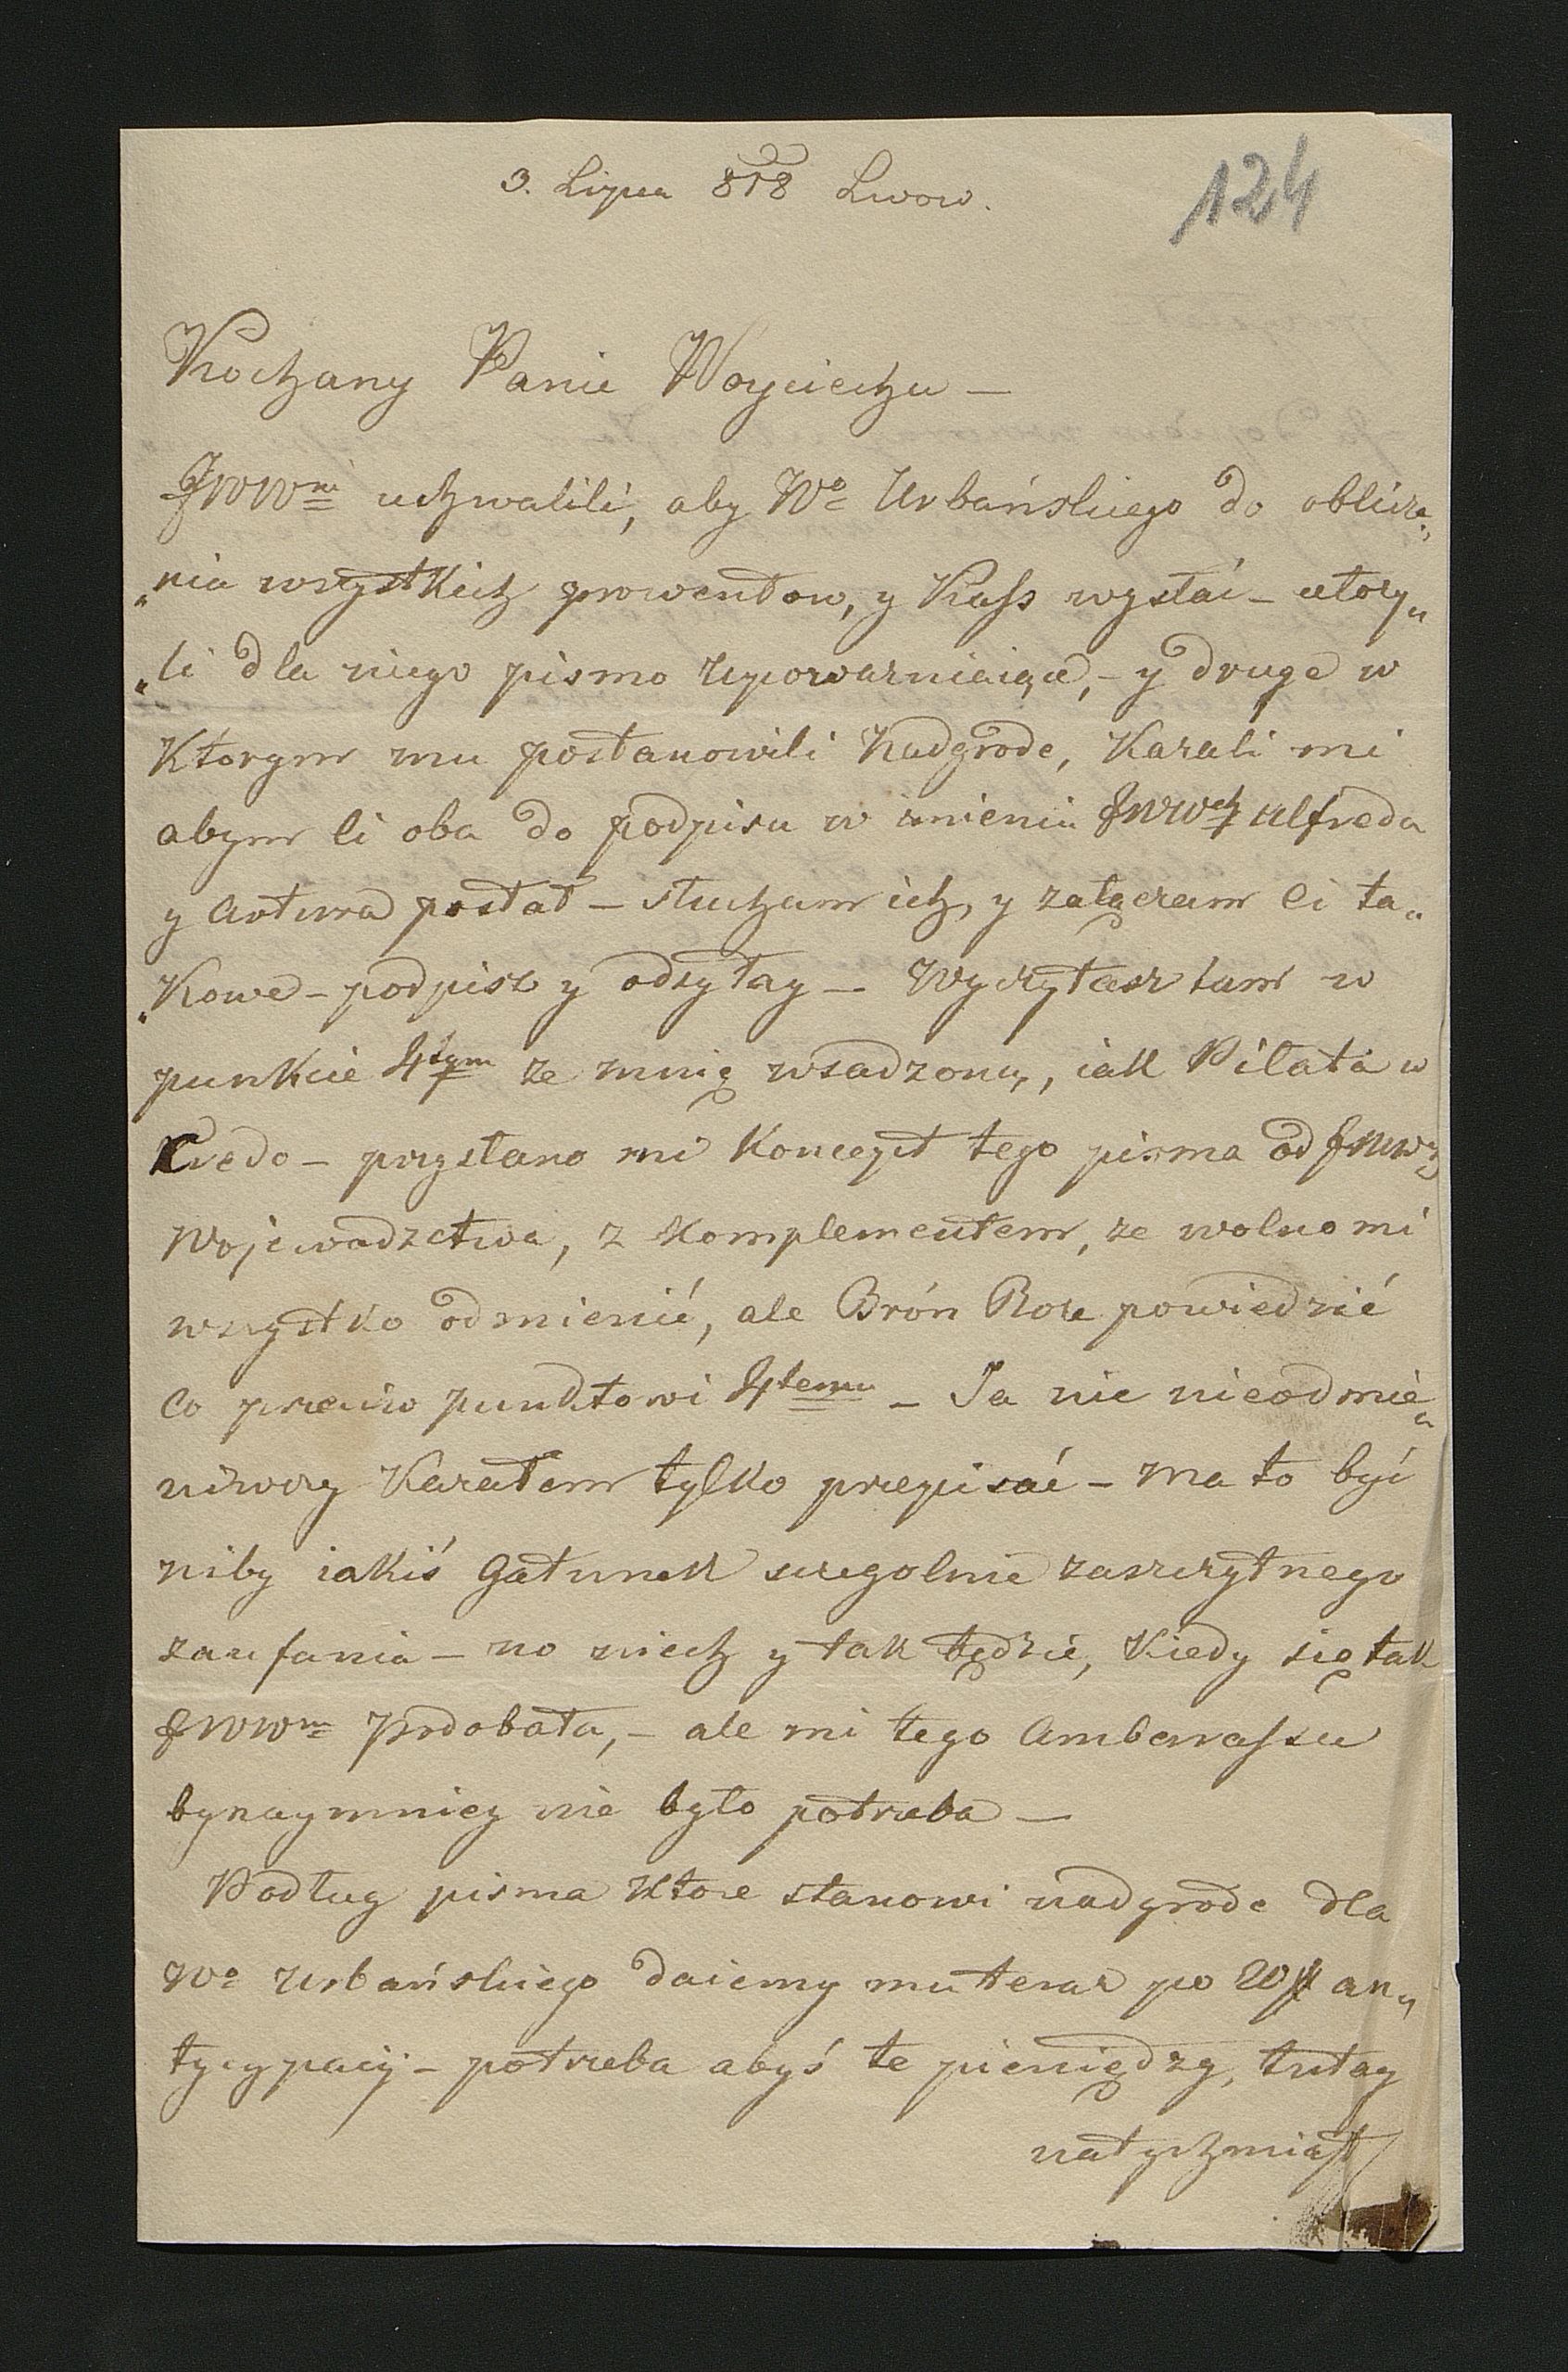 3. Lipca 818 Lwow.
124
Kochany Panie Woyciechu —
JWWni uchwalili, aby Wo Urbańskiego do oblicze„
„nia wszystkich prowentow, y Kass wysłać – ułoży„
„li dla niego pismo upoważniaiące, – y drugie w
Ktorym mu postanowili Nadgrode, Kazali mi
abym Ci oba do podpisu w imieniu JWWch Alfreda
y Artura posłał – słucham ich, y załączam Ci ta„
„Kowe – podpisz y odsyłay — Wyczytasz tam w
punkcie 4tym że mnię wsadzono, iak Piłata w
Credo – przysłano mi Koncept tego pisma od JWW
Wojewodztwa, z Komplementem, że wolno mi
wszystko odmienić, ale Broń Boże powiedzić
co przeciw punktowi 4temu – Ja nic nieodmie„
niwszy Kazałem tylko przepisać – ma to być
niby iakiś Gatunek szczegolnie zaszczytnego
zaufania – no niech y tak będzie, Kiedy się tak
JWWm Podobało, – ale mi tego Ambarassu
bynaymniey nie było potrzeba —
Podług pisma Ktore stanowi nadgrode dla
Wo Urbańskiego daiemy mu teraz po 20 # an„
tycypacij – potrzeba abyś te pieniędzy, tutay
natychmiast